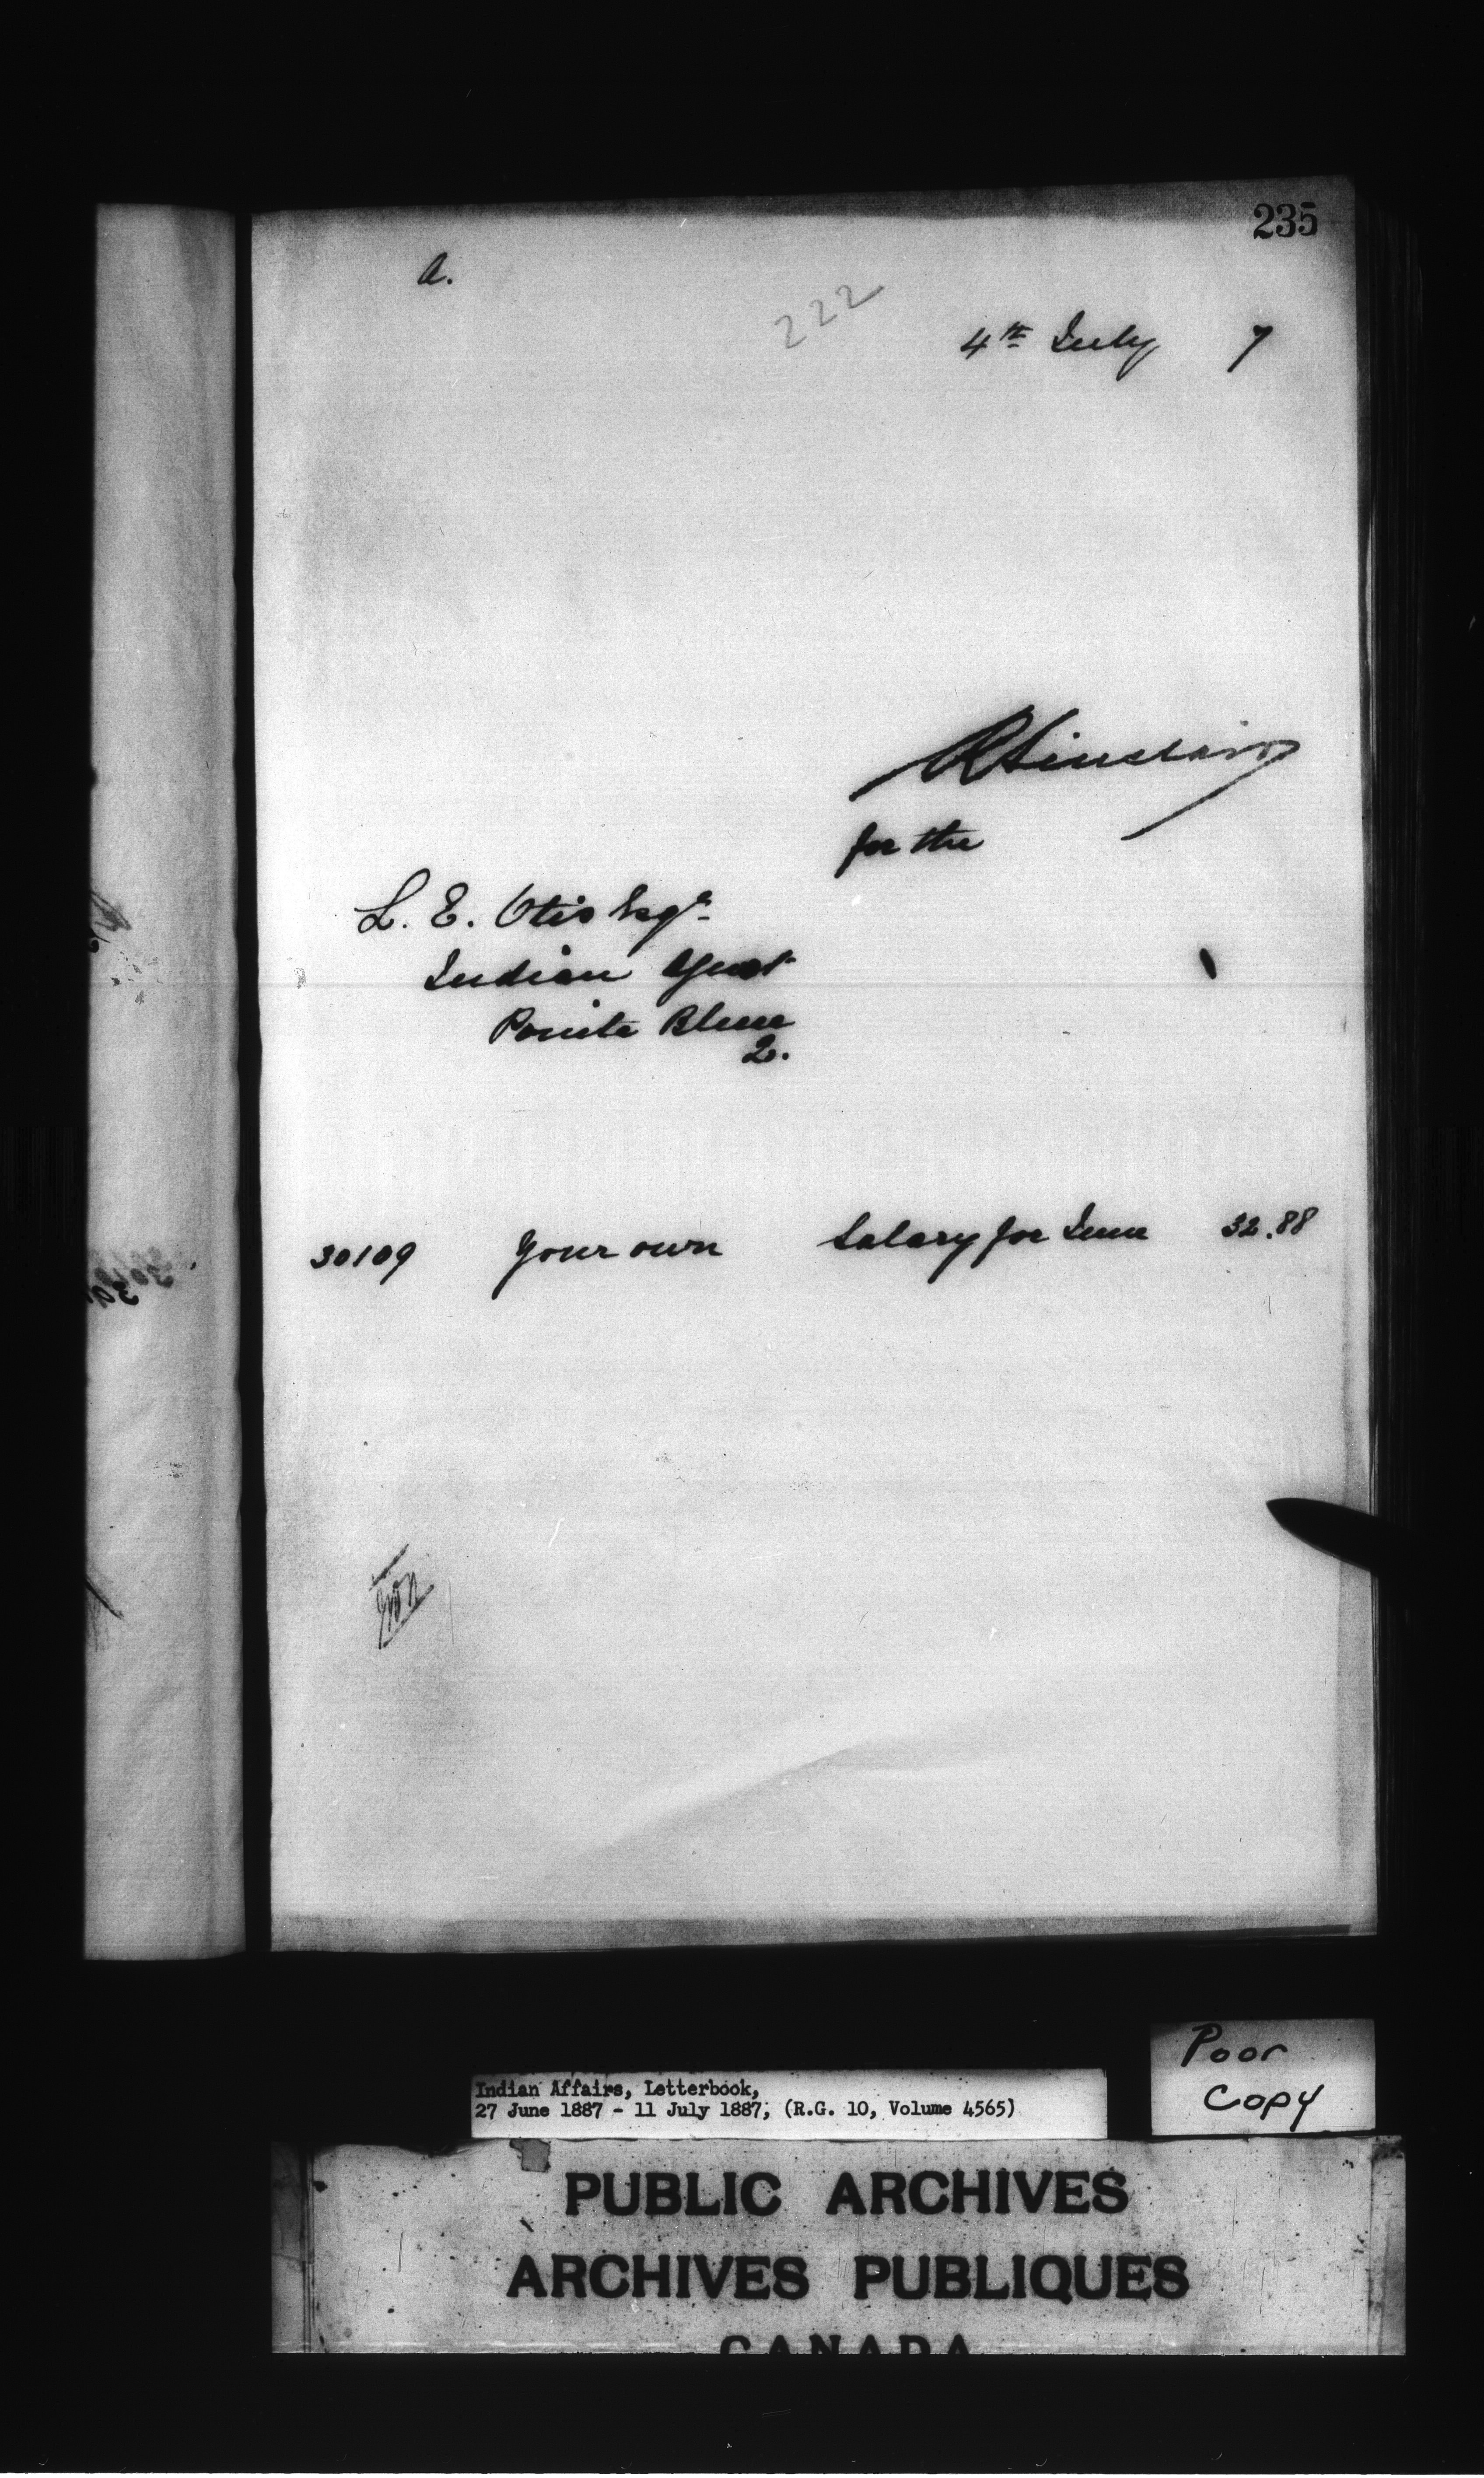 235
a.
222
4th July 7
R Sinclair
for the
L. E. Otis Esqr
Indian Agent
Pointe Bleue
Q.
30109 Your own Salary for June 32.88
Poor
Copy
Indian Affairs, Letterbook,
27 June 1887 - 11 July 1887, (R.G. 10, Volume 4565)
PUBLIC ARCHIVES
ARCHIVES PUBLIQUES
CANADA